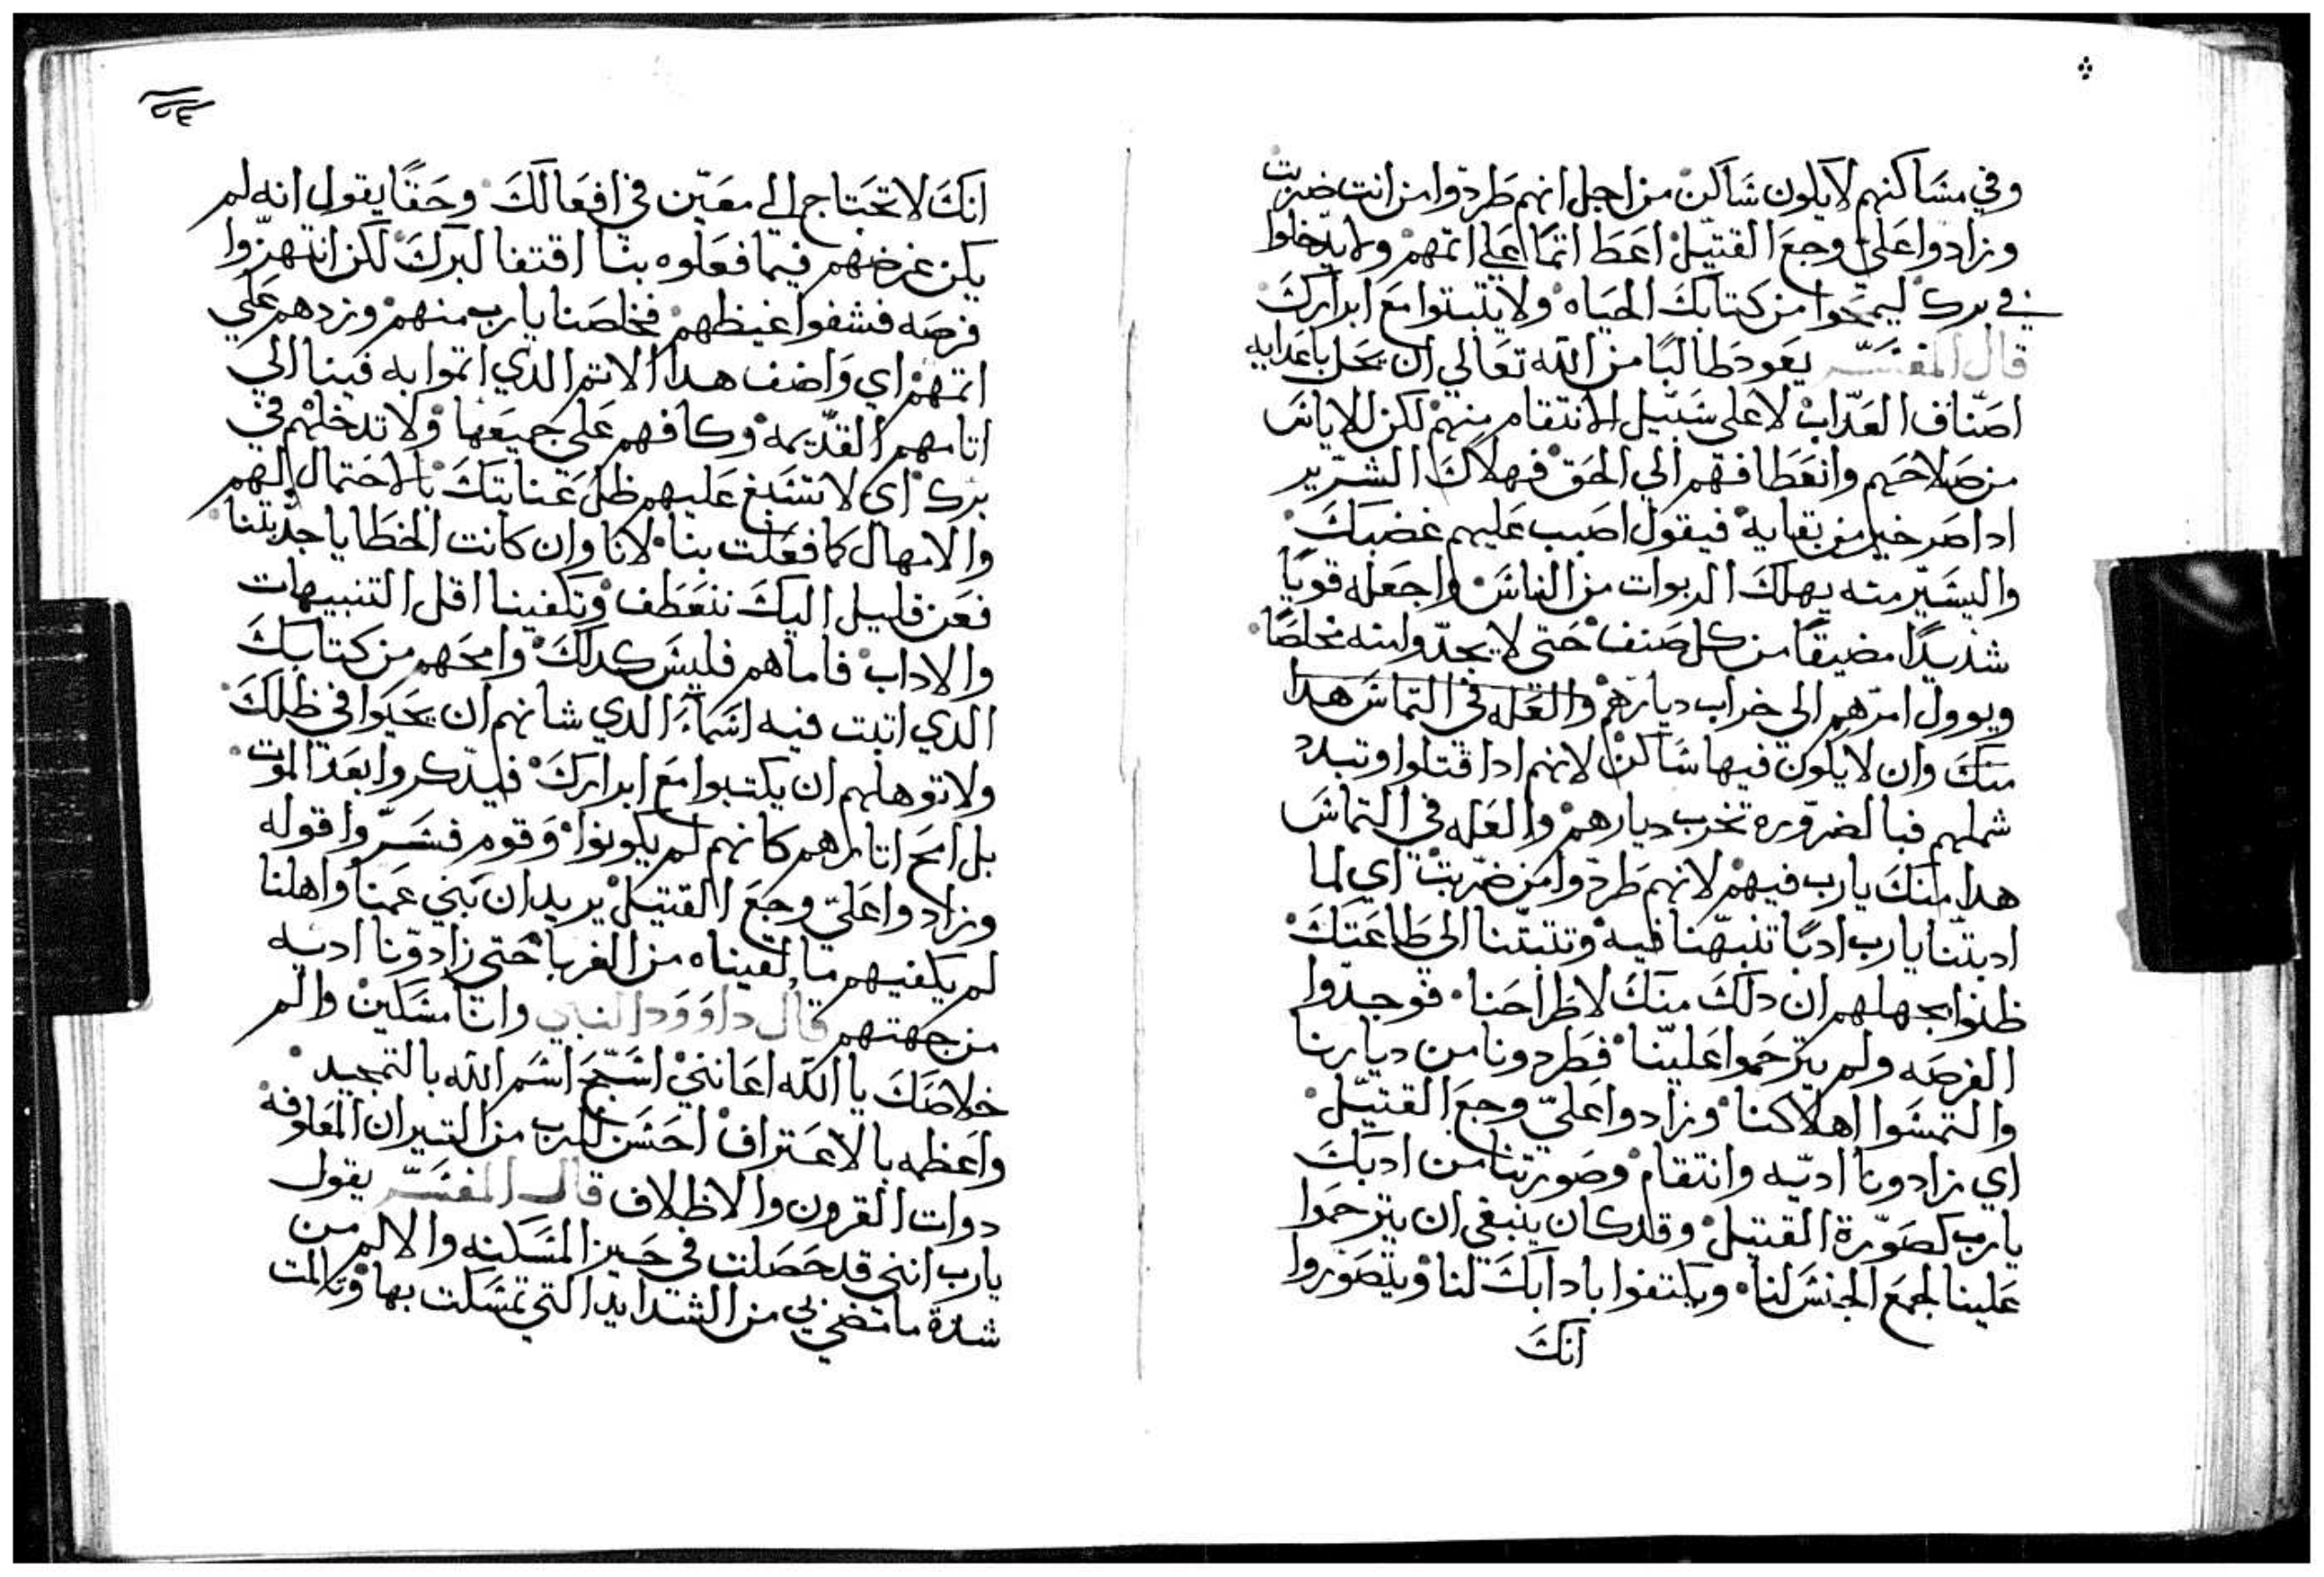 وفي مساكنهم لا يكون ساكن من اجل انهم طردوا من انت ضربت
وزادوا علي وجع القتيل اعط اتمًا علي اتمهم ولا يدخلوا
في برك ليمحوا من كتابك الحياه ولا يتبتوا مع ابرارك
قال المفسر يعود طالبًا من الله تعالي ان يحل باعدايه
اصناف العداب لا علي سبيل الانتقام منهم لكن للاياس
من صلاحهم وانعطافهم الي الحق فهلاك الشرير
ادا صر خير من بقايه فيقول اصبب عليهم غضبك
واليسير منه يهلك الربوات من الناس واجعله قويًا
شديدًا مضيقًا من كل صنف حتي لا يجدوا منه مخلصًا
ويوول امرهم الي خراب ديارهم والعله في التماس هدا
منك وان لا يكون فيها ساكن لانهم ادا قتلوا وتبدد
شملهم فبالضروره تخرب ديارهم والعله في التماس
هدا منك يارب فيهم لانهم طردوا من ضربت اي لما
ادبتنا يارب ادبًا تنبهنا فيه وتتبتنا الي طاعتك
ظنوا بجهلهم ان دلك منك لاطراحنا فوجدوا
الفرصه ولم يترحموا علينا فطردونا من ديارنا
والتمسوا اهلاكنا وزادوا علي وجع القتيل
اي زادونا اديه وانتقام وصورتنا من ادبك
يارب كصورة القتيل وقد كان ينبغي ان يترحموا
علينا لجمع الجنس لنا ويكتفوا بادابك لنا ويتصوروا
انك
انك لا تحتاج الي معين في افعالك وحقًا يقول انه لم
يكن غرضهم فيما فعلوه بنا اقتفا لبرك لكن انتهزوا
فرصه فشفوا غيظهم فخلصنا يارب منهم وزدهم علي
اتمهم اي واضف هدا الاتم الدي اتموا به فينا الي
اتامهم القديمه وكافهم علي جميعها ولا تدخلهم في
برك اي لا تسبغ عليهم ظل عنايتك بالاحتمال لهم
والامهال كما فعلت بنا لانا وان كانت الخطايا جدبتنا
فعن قليل اليك ننعطف وتكفينا اقل التنبيهات
والاداب فاما هم فليس كدلك وامحهم من كتابك
الدي اتبت فيه اسماء الدي شانهم ان يحيوا في ظلك
ولا توهلهم ان يكتبوا مع ابرارك فيدكروا بعد الموت
بل امح اتارهم كانهم لم يكونوا وقوم فسروا قوله
وزادوا علي وجع القتيل يريد ان بني عمنا واهلنا
لم يكفيهم ما لقيناه من الغربا حتي زادونا اديه
من جهتهم قال داوود النبي وانا مسكين والم
خلاصك يا الله اعانني اسبح اسم الله بالتمجيد
واعظمه بالاعتراف احسن للرب من التيران المعلوفه
دوات القرون والاظلاف قال المفسر يقول
يارب انني قد حصلت في حيز المسكنه والالم من
شدة ما مضي بي من الشدايد التي تمسكت بها وتالمت